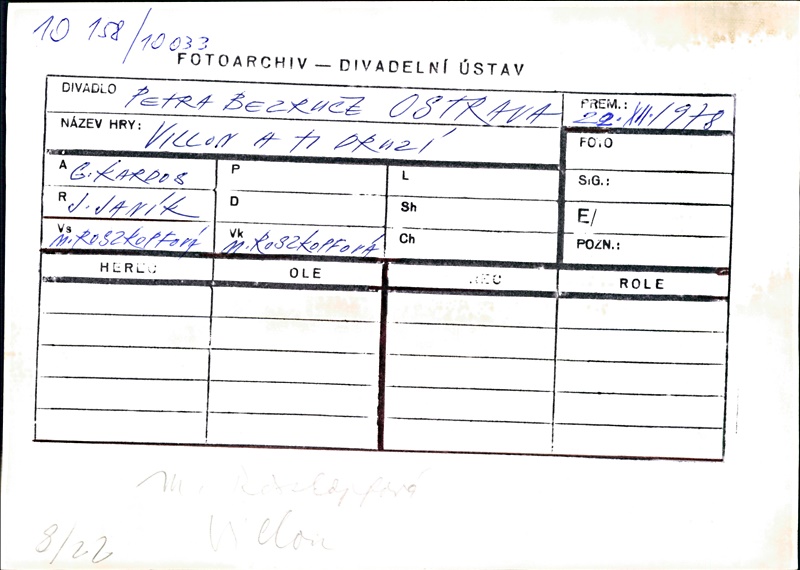 10 158/10 033
FOTOARCHIV — DIVADELNÍ ÚSTAV
DIVADLO PETRA BEZRUČE OSTRAVA
PREM.: 22. XII. 1978
NÁZEV HRY: VILLON A TI DRUZÍ
FOTO
A G. KARDOS
P
L
SIG.:
R J. JANÍK
D
Sh
E/
Vs M. ROSZKOPFOVÁ
Vk M. ROSZKOPFOVÁ
Ch
POZN.:
HEREC OLE EC ROLE
M. Roszkopfová
Villon
8/22